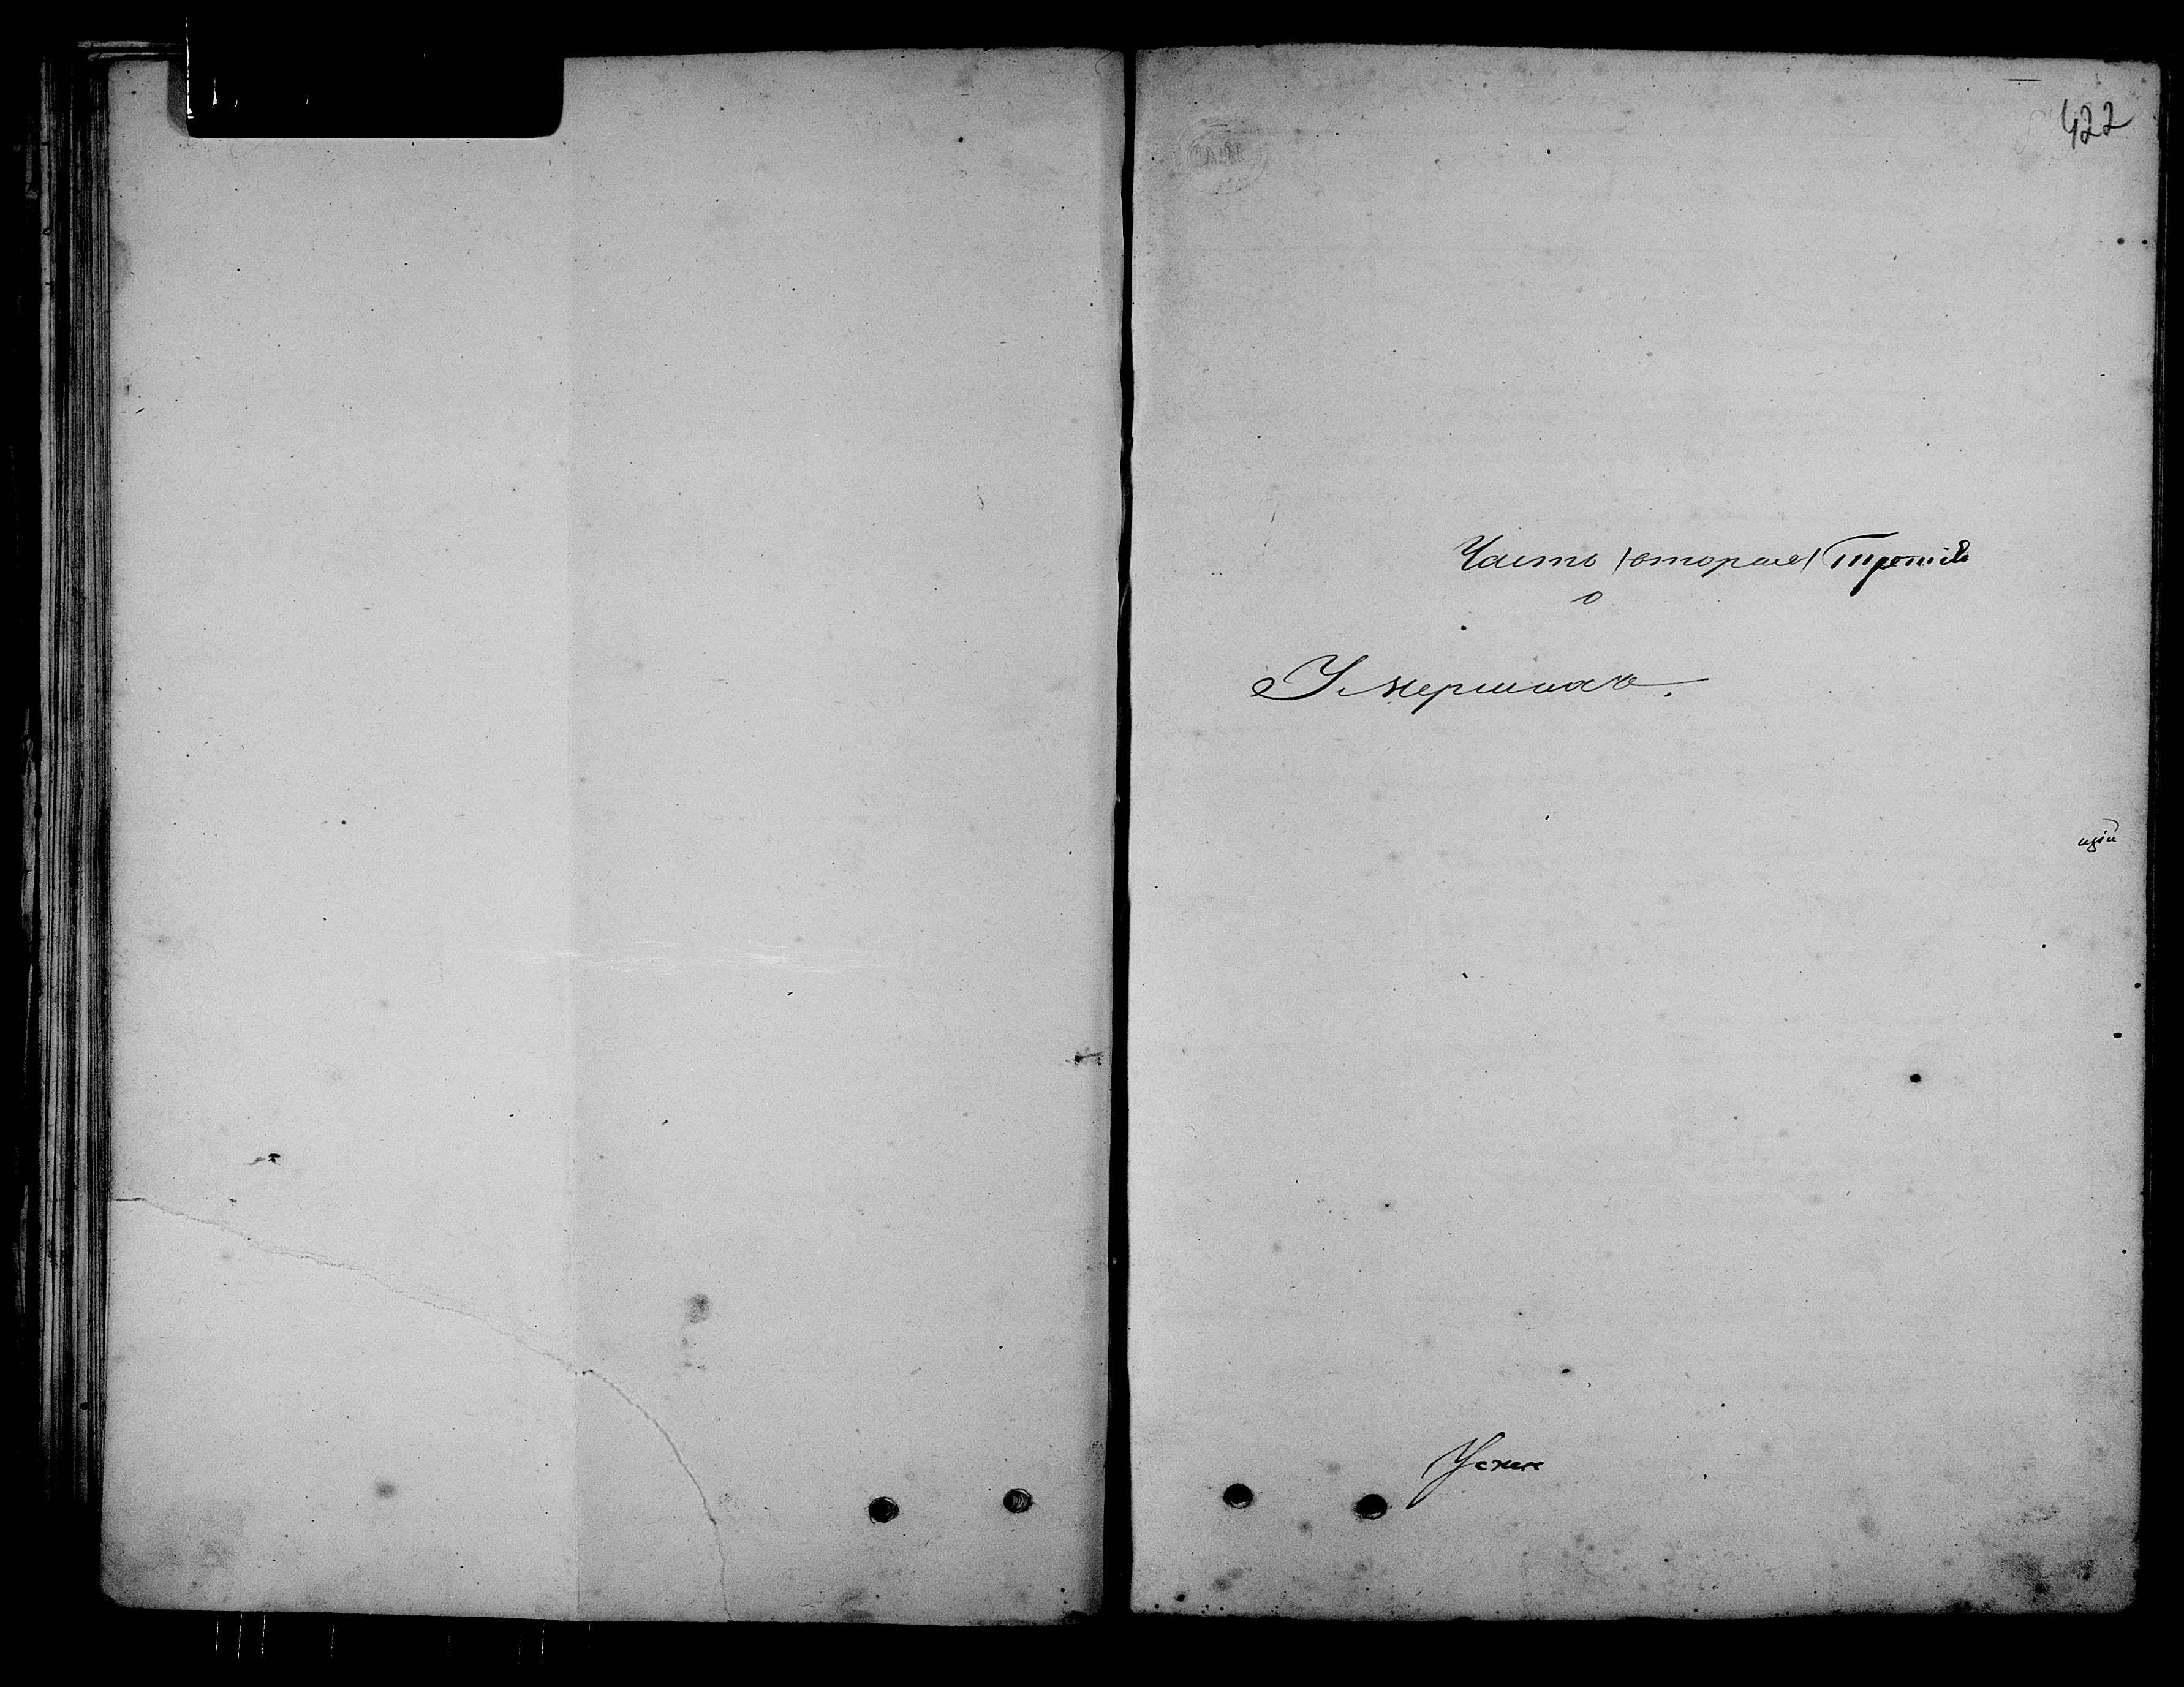 422
Часть /вторая/ Третія
о
Умершихъ.